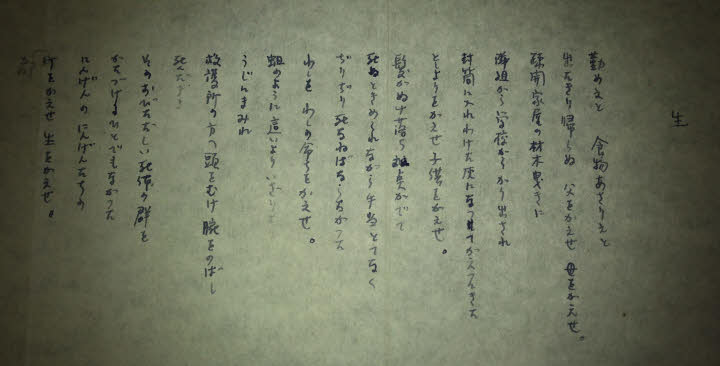 生
勤めえと 食物あさりえと
出たきり帰らぬ 父をかえせ 母をかえせ。
疎開家屋の材木曳きに
隣組から 夜から かり出され
封筒に入れわけた灰になって かえってきた
としよりをかえせ 子供をかえせ。
髪がぬけ落ち 斑点がでて
死ぬときめられながら手当とてなく
ぢりぢり死なねばならなかった
わしを わしの命をかえせ。
蛆のように這いより いざりより
うじにまみれ
救護所の方へ頭をむけ 腕をのばし
死んだ
そのおびただしい死体の群を
かたづけるひとでもなかった
にんげんの にんげんたちの
をかえせ 生をかえせ。